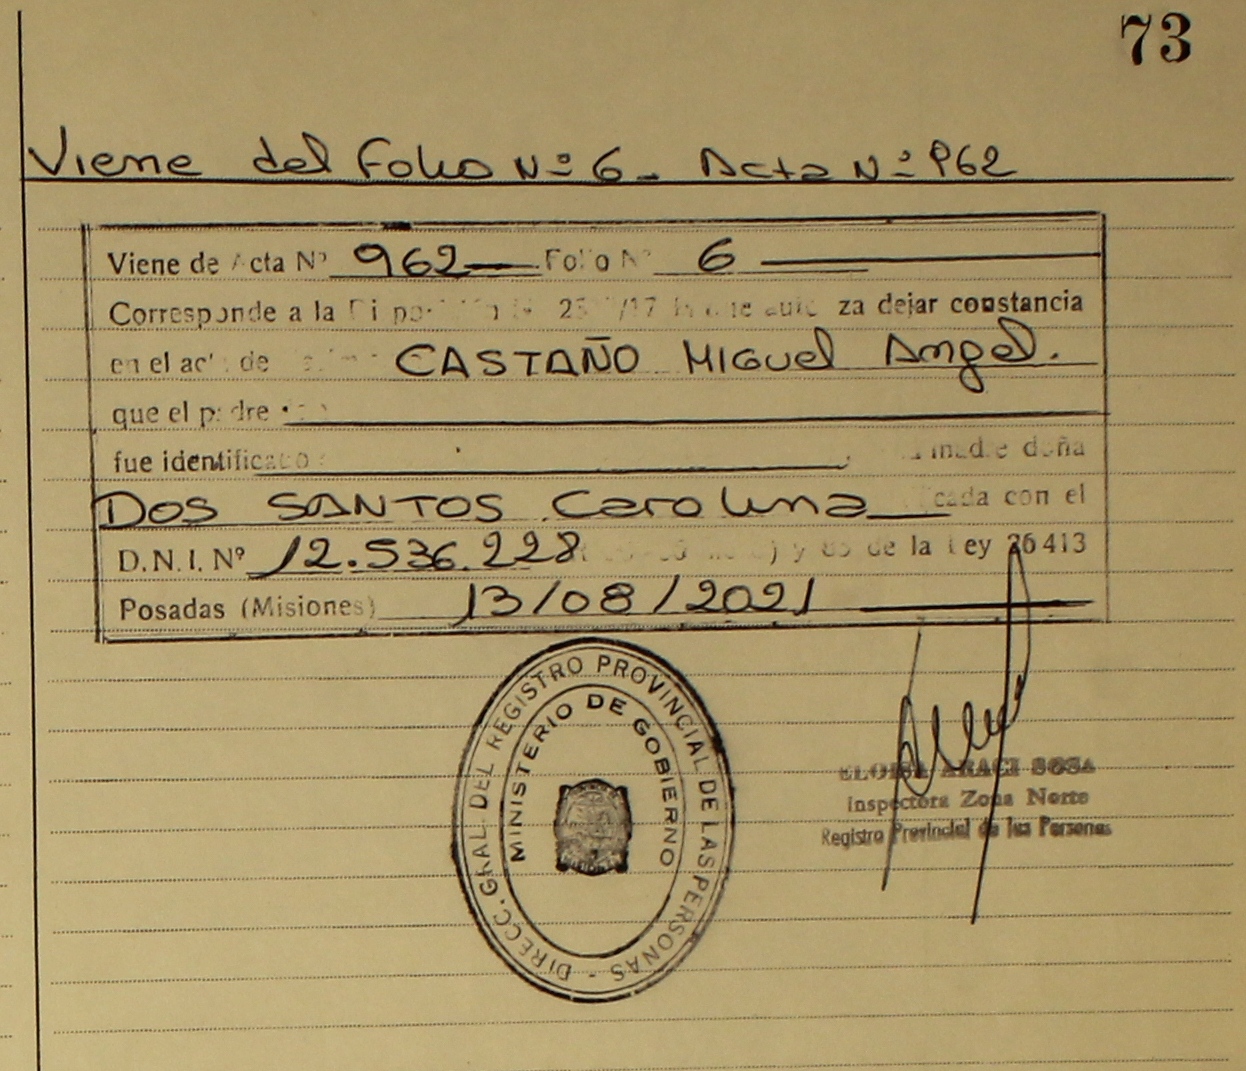 73
Viene del Folio Nº 6 - Acta Nº 962
Viene de Acta Nº 962 Folio Nº 6
Corresponde a la za dejar constancia
en el ac de CASTAÑO MIGUEL Angel.
que el padre
fue identificado madre doña
DOS SANTOS Carolina cada con el
D.N.I. Nº 12.536.228 y 85 de la Ley 26413
Posadas (Misiones) 13/08/2021
DIRECC. GRAL. DEL REGISTRO PROVINCIAL DE LAS PERSONAS -
MINISTERIO DE GOBIERNO
ELOISA ARACI SOSA
Inspectora Zona Norte
Registro Provincial de las Personas